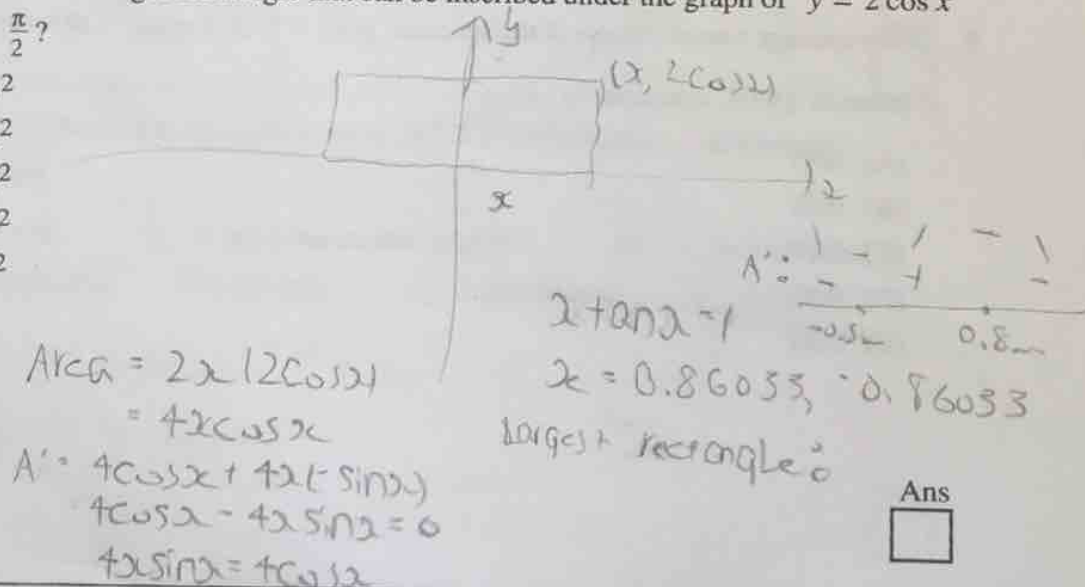 that can be inscribed under the graph of y = 2 cos x
π/2 ?
2
2
2
2
2
y
(x, 2cosx)
x
x
A':
- + -
-0.8 0.8
x tanx = 1
x = 0.86033, -0.86033
Largest rectangle:
Area = 2x(2cosx)
= 4xcosx
A' = 4cosx + 4x(-sinx)
4cosx - 4xsinx = 0
4xsinx = 4cosx
Ans